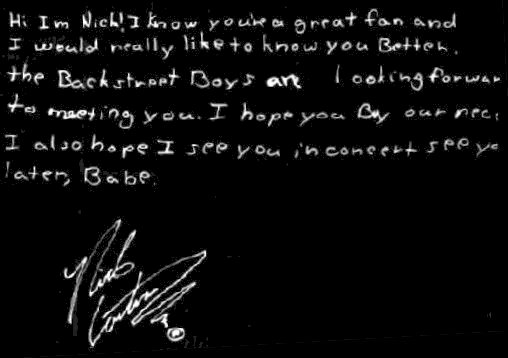 Hi Im Nick! I know you're a great fan and
I would really like to know you Better.
the Backstreet Boys are looking forwar
to meeting you. I hope you By our rec
I also hope I see you in concert see yo
later, Babe.
Nick
Carter